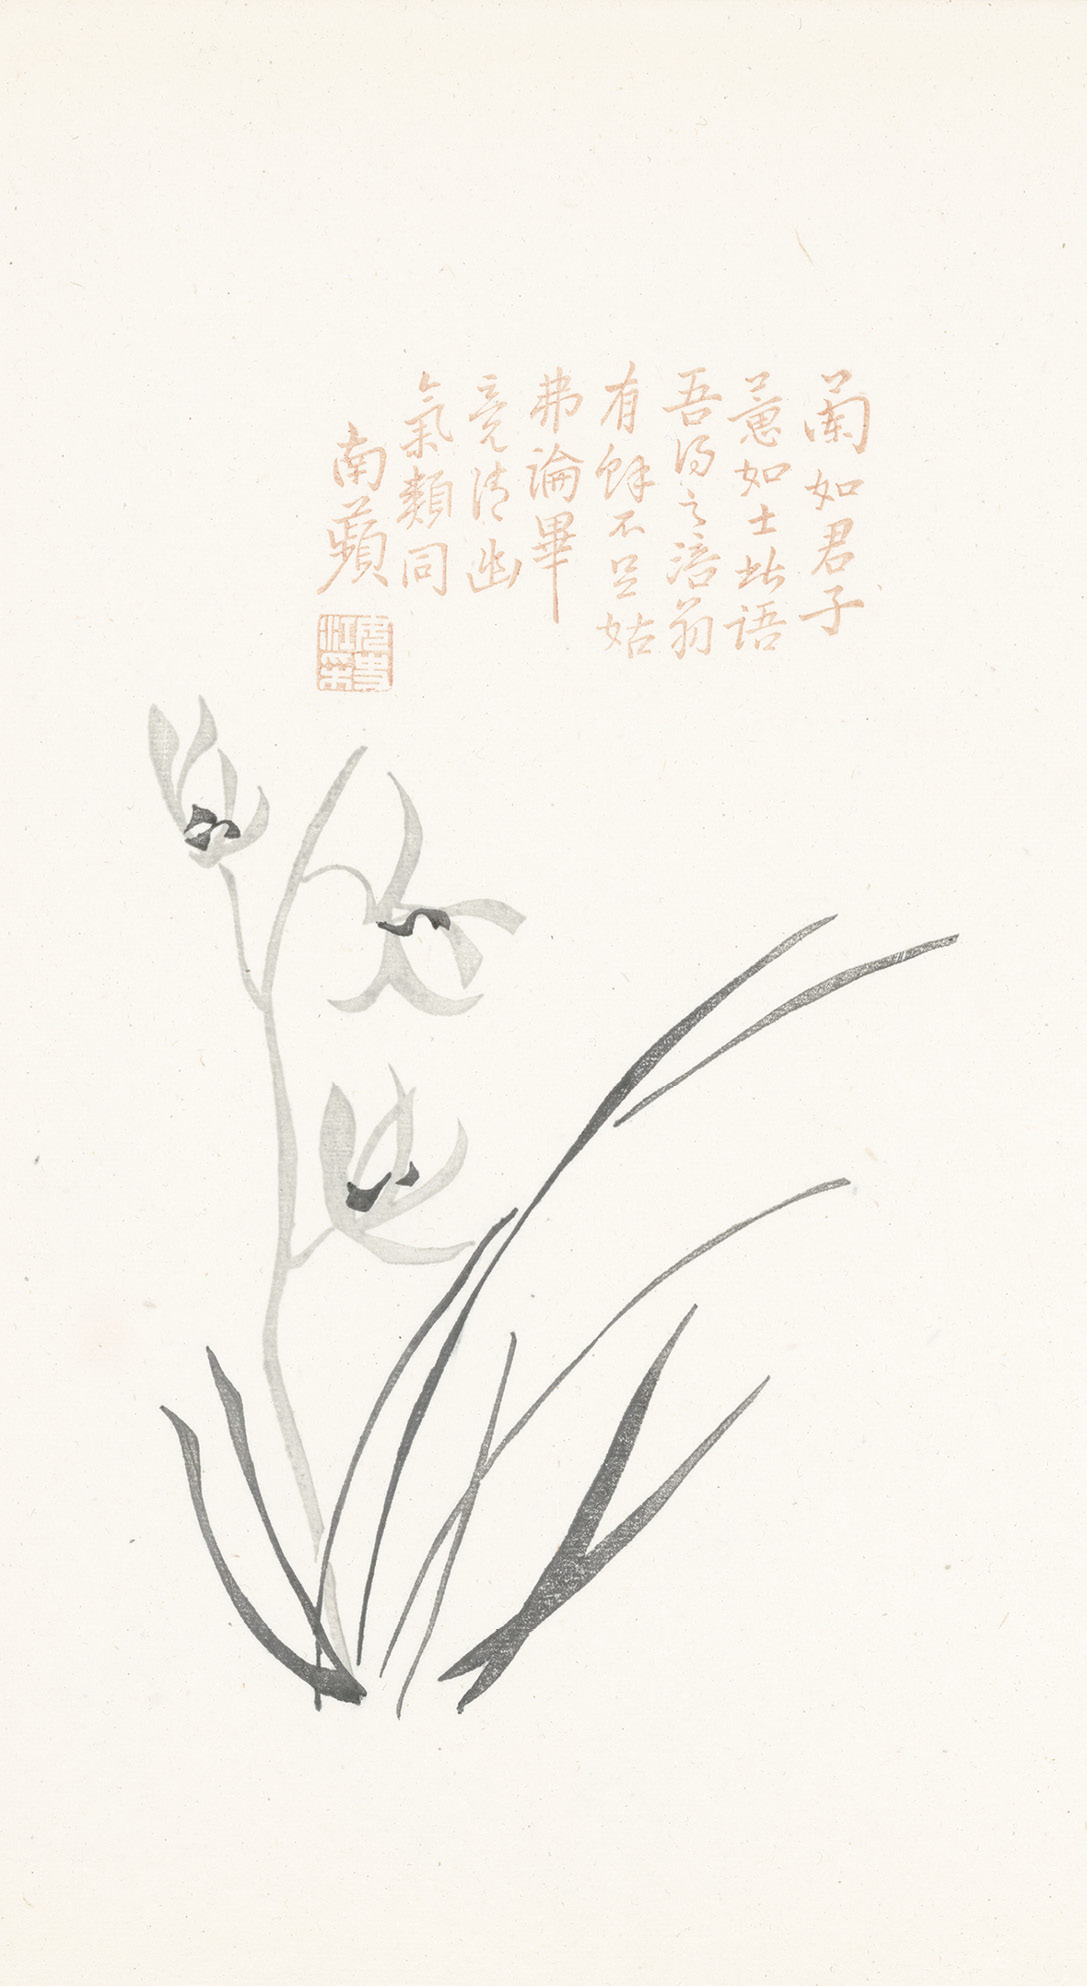 蘭如君子
蕙如士此語
吾得之涪翁
有餘不足姑
弗論畢
竟清幽
氣類同
南蘋